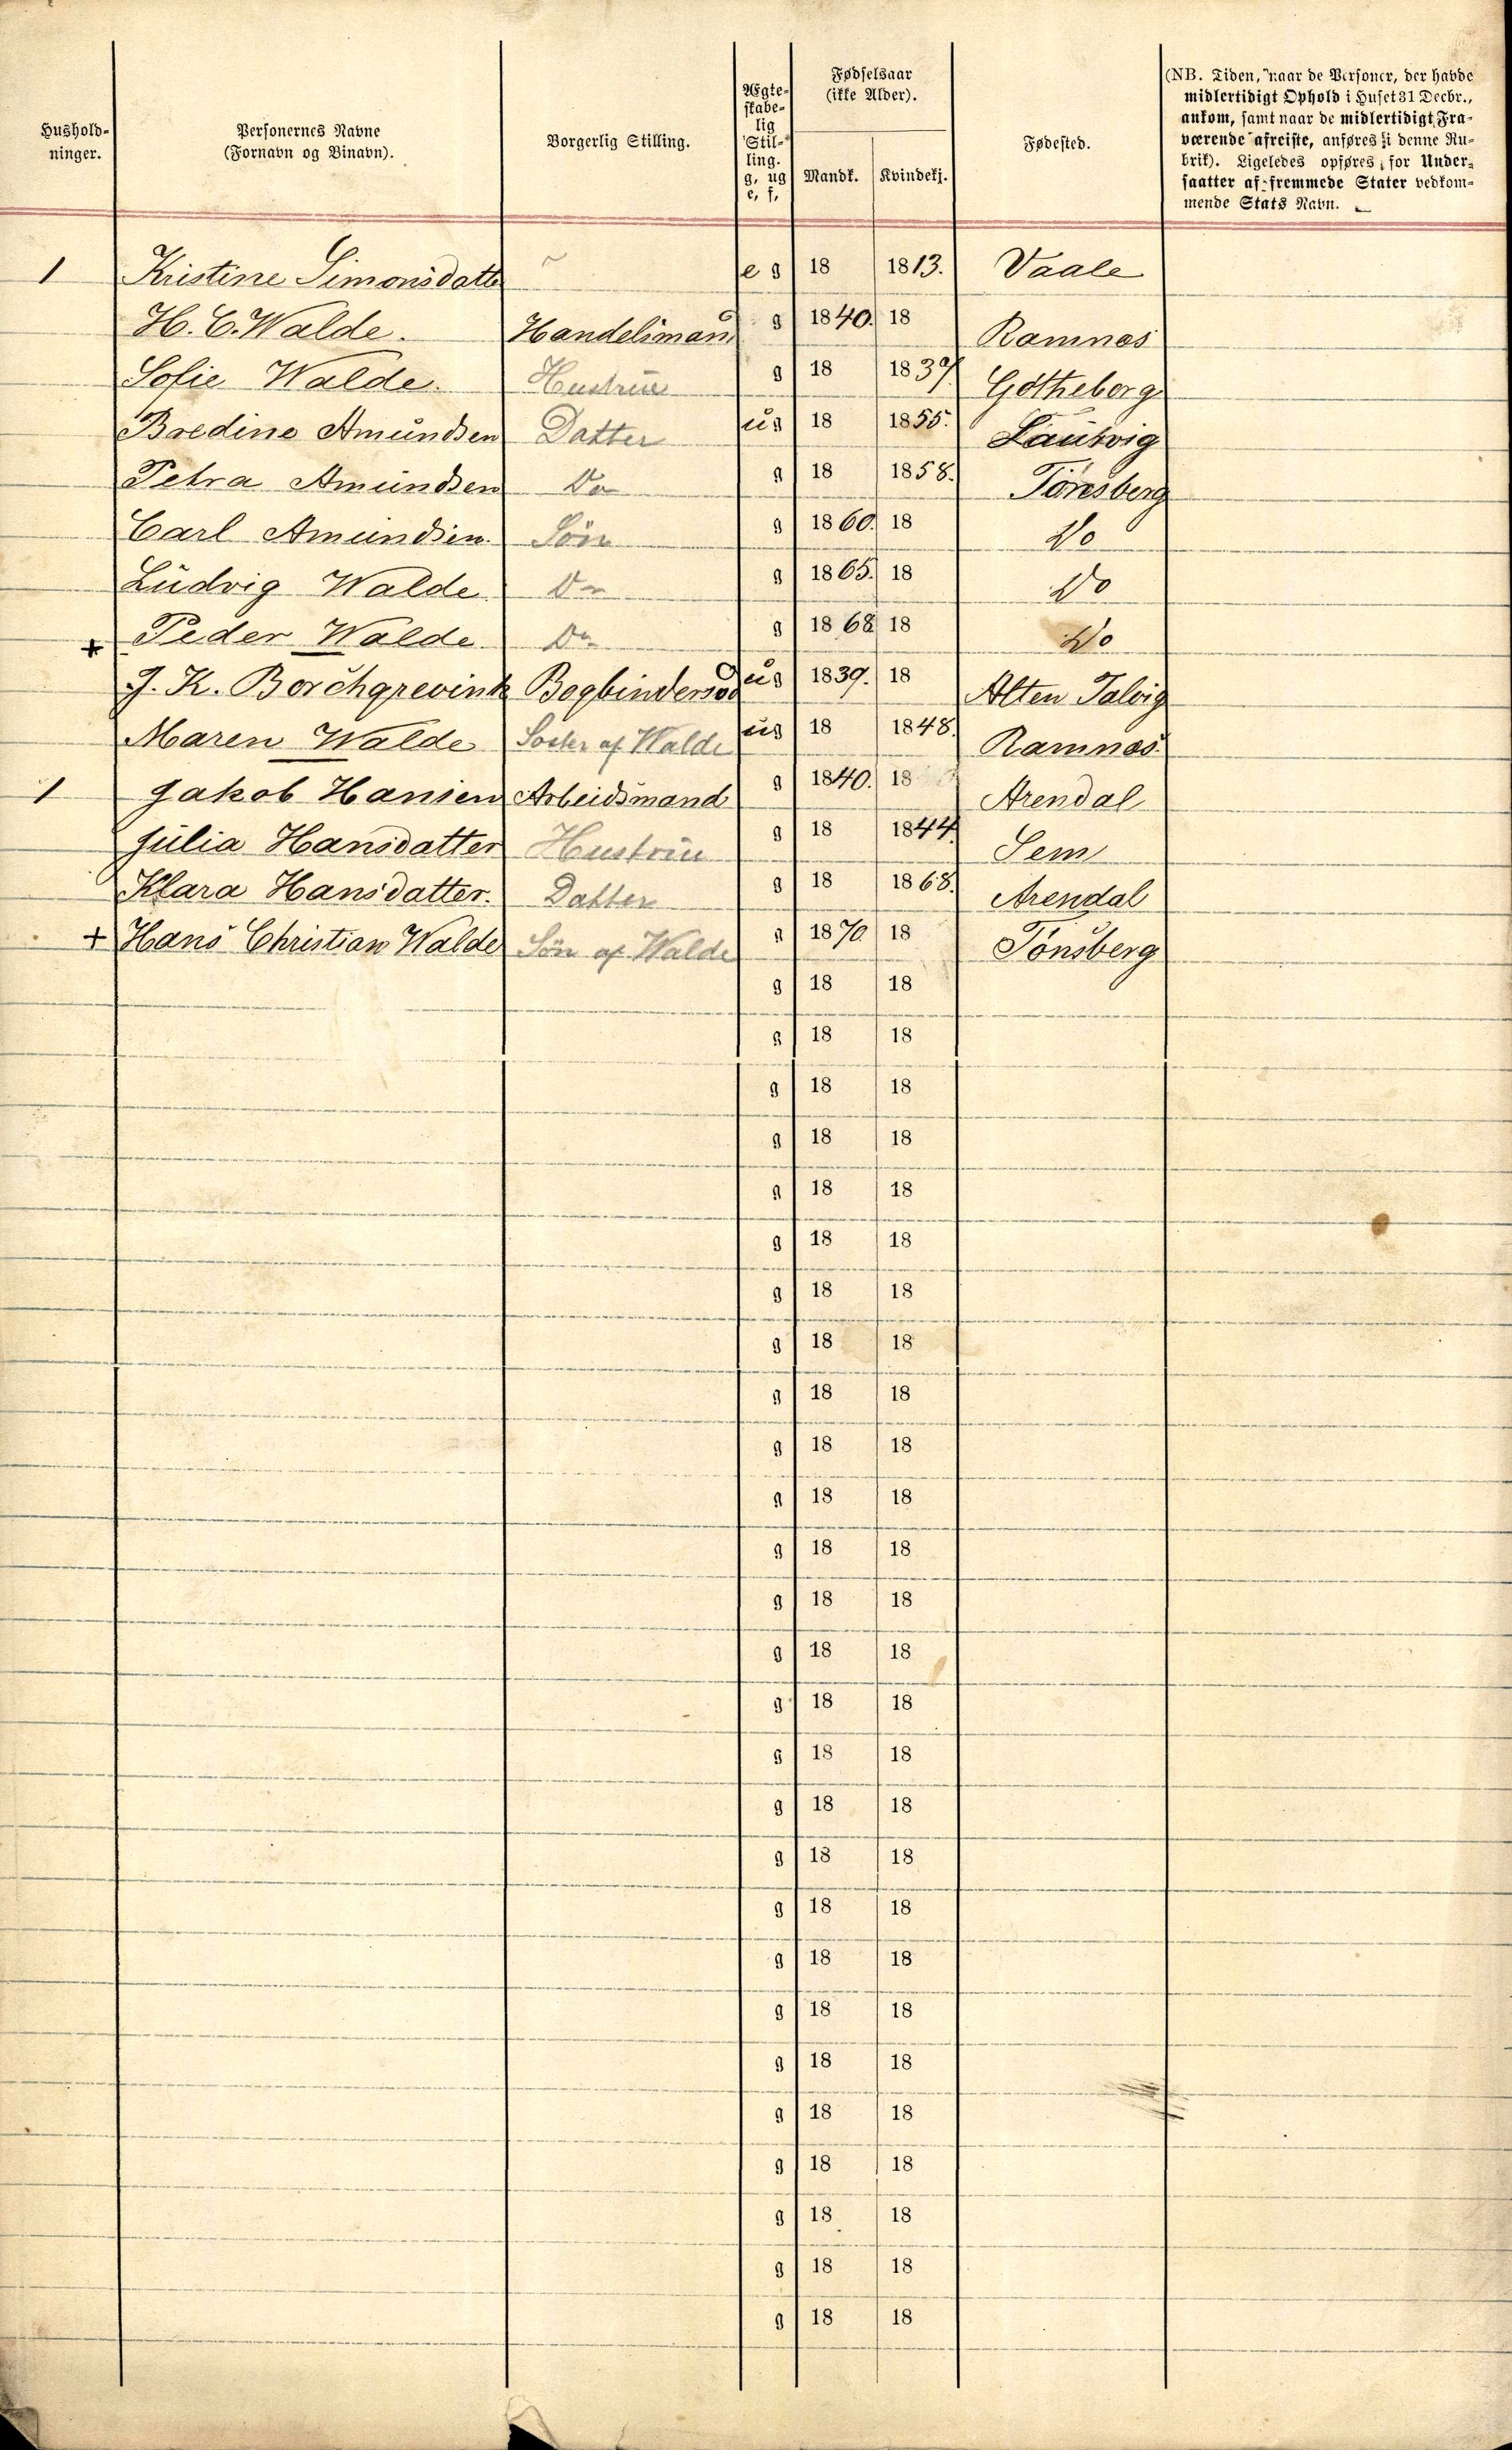 Hushold-
ninger.
Personernes Navne
(Fornavn og Binavn).
Borgerlig Stilling.
Ægte-
skabe-
lig
Stil-
ling.
g, ug
e, f,
Fødselsaar
(ikke Alder).
Mandk.
Kvindekj.
Fødested.
(NB. Tiden, naar de Personer, der havde
midlertidigt Ophold i Huset 31 Decbr.,
ankom, samt naar de midlertidigt Fra-
værende afreiste, anføres i denne Ru-
brik). Ligeledes opføres for Under-
saatter af fremmede Stater vedkom-
mende Stats Navn.
1 Kristine Simonsdatte e g 18 1813. Vaale
H. C. Walde. Handelsmand g 1840. 18 Ramnes
Sofie Walde. Hustrue g 18 1837 Götheborg
Bredine Amundsen Datter ug 18 1855. Laurvig
Petra Amundsen Do g 18 1858. Tönsberg
Carl Amundsen Sön g 1860. 18 Do
Ludvig Walde Do g 1865. 18 Do
+ Peder Walde Do g 1868 18 Do
J. K. Borchgrevink Bogbindersv ug 1839. 18 Alten Talvig
Maren Walde Söster af Walde ug 18 1848. Ramnæs
1 Jakob Hansen Arbeidsmand g 1840. 18 Arendal
Julia Hansdatter Hustrue g 18 1844. Sem
Klara Hansdatter. Datter g 18 1868. Arendal
+ Hans Christian Walde Sön af Walde g 1870 18 Tönsberg
g 18 18
g 18 18
g 18 18
g 18 18
g 18 18
g 18 18
g 18 18
g 18 18
g 18 18
g 18 18
g 18 18
g 18 18
g 18 18
g 18 18
g 18 18
g 18 18
g 18 18
g 18 18
g 18 18
g 18 18
g 18 18
g 18 18
g 18 18
g 18 18
g 18 18
g 18 18
g 18 18